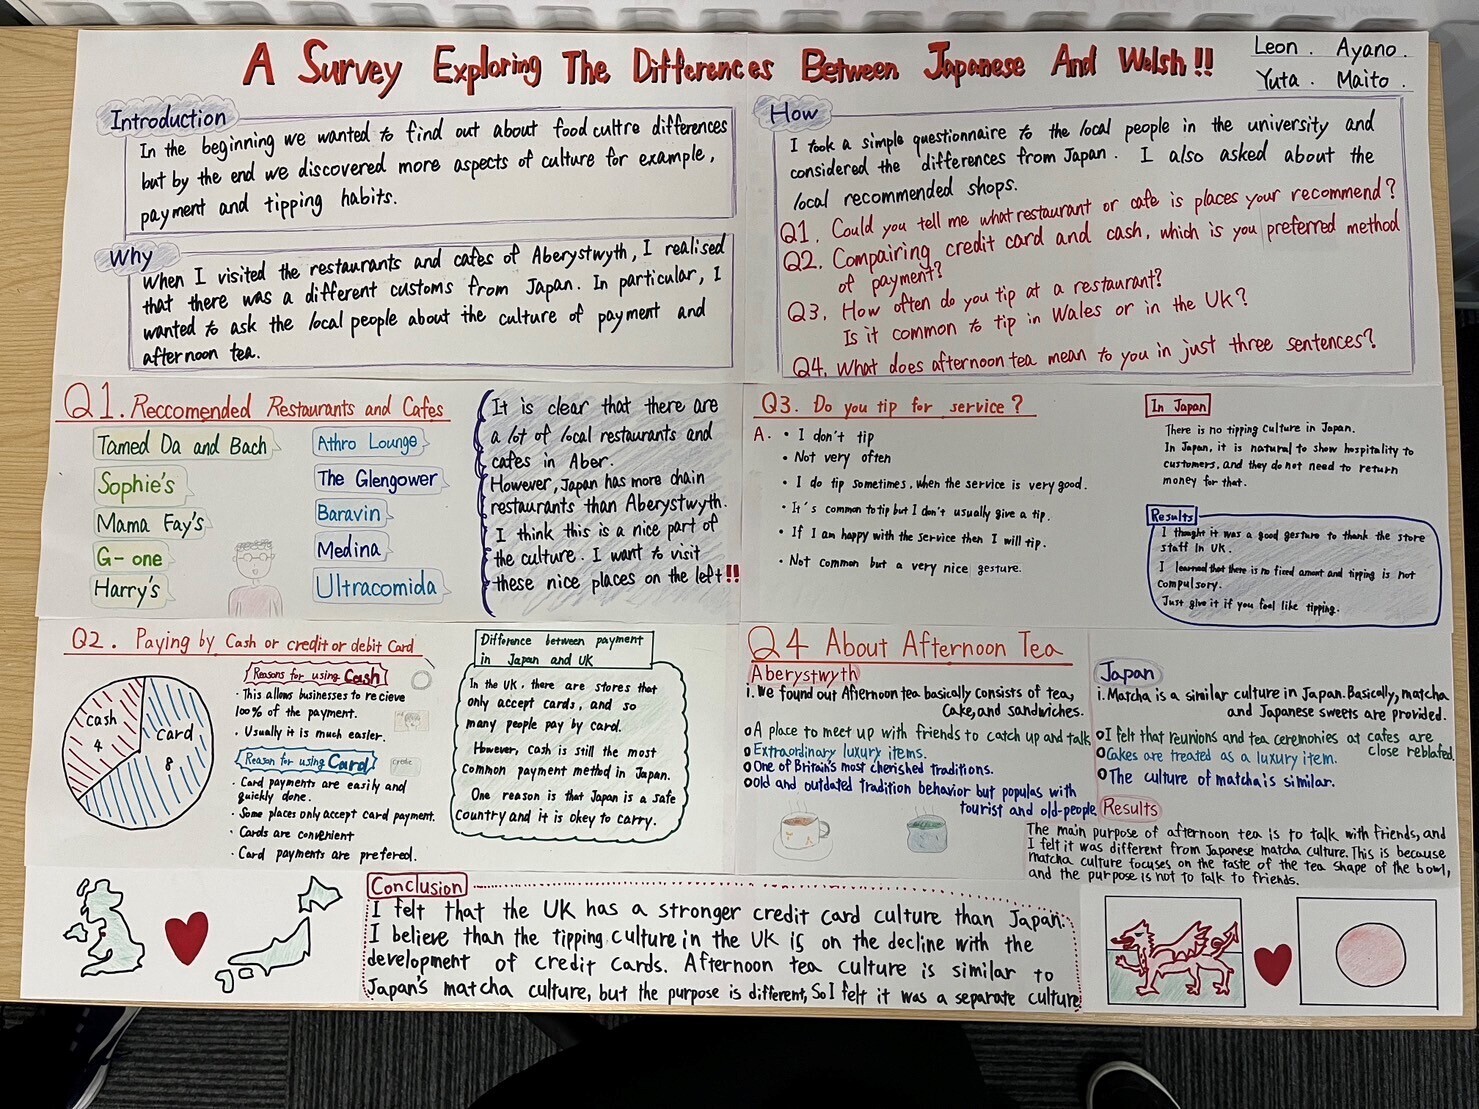 A Survey Exploring The Differences Between Japanese And Welsh!!
Leon. Ayano.
Yuta. Maito.
Introduction
In the beginning we wanted to find out about food cultre differences
but by the end we discovered more aspects of culture for example,
payment and tipping habits.
Why
When I visited the restaurants and cafes of Aberystwyth, I realised
that there was a different customs from Japan. In particular, I
wanted to ask the local people about the culture of payment and
afternoon tea.
How
I took a simple questionnaire to the local people in the university and
considered the differences from Japan. I also asked about the
local recommended shops.
Q1. Could you tell me what restaurant or cafe is places your recommend?
Q2. Compairing credit card and cash, which is you preferred method
of payment?
Q3. How often do you tip at a restaurant?
Is it common to tip in Wales or in the UK?
Q4. What does afternoon tea mean to you in just three sentences?
Q1. Reccomended Restaurants and Cafes
Tamed Da and Bach
Sophie's
Mama Fay's
G-one
Harry's
Athro Lounge
The Glengower
Baravin
Medina
Ultracomida
It is clear that there are
a lot of local restaurants and
cafes in Aber.
However, Japan has more chain
restaurants than Aberystwyth.
I think this is a nice part of
the culture. I want to visit
these nice places on the left!!
Q3. Do you tip for service?
A. • I don't tip
• Not very often
• I do tip sometimes, when the service is very good.
• It's common to tip but I don't usually give a tip.
• If I am happy with the service then I will tip.
• Not common but a very nice gesture.
In Japan
There is no tipping culture in Japan.
In Japan, it is natural to show hospitality to
customers, and they do not need to return
money for that.
Results
I thought it was a good gesture to thank the store
staff in UK.
I learned that there is no fixed amont and tipping is not
compulsory.
Just give it if you feel like tipping.
Q2. Paying by Cash or credit or debit Card
cash
4
card
8
Reasons for using Cash
• This allows businesses to recieve
100% of the payment.
• Usually it is much easier.
Reason for using Card
• Card payments are easily and
quickly done.
• Some places only accept card payment.
• Cards are convenient
• Card payments are prefered.
Difference between payment
in Japan and UK
In the UK, there are stores that
only accept cards, and so
many people pay by card.
However, cash is still the most
common payment method in Japan.
One reason is that Japan is a safe
country and it is okey to carry.
Q4 About Afternoon Tea
Aberystwyth
i. We found out Afternoon tea basically consists of tea,
Cake, and sandwiches.
o A place to meet up with friends to catch up and talk
o Extraordinary luxury items.
o One of Britain's most cherished traditions.
o Old and outdated tradition behavior but populas with
tourist and old-people
Japan
i. Matcha is a similar culture in Japan. Basically, matcha
and Japanese sweets are provided.
o I felt that reunions and tea ceremonies at cafes are
close reblated.
o Cakes are treated as a luxury item.
o The culture of matcha is similar.
Results
The main purpose of afternoon tea is to talk with friends, and
I felt it was different from Japanese matcha culture. This is because
matcha culture focuses on the taste of the tea shape of the bowl,
and the purpose is not to talk to friends.
Conclusion
I felt that the UK has a stronger credit card culture than Japan.
I believe than the tipping culture in the UK is on the decline with the
development of credit cards. Afternoon tea culture is similar to
Japan's matcha culture, but the purpose is different, So I felt it was a separate culture.